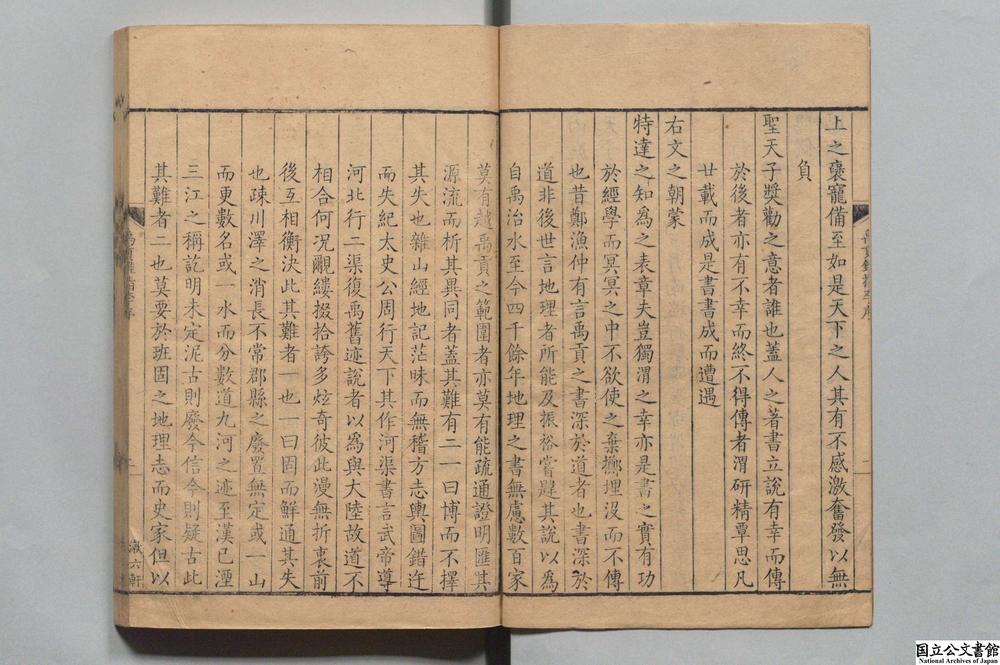 上之襃寵備至如是天下之人其有不感激奮發以無
負
聖天子奬勸之意者誰也蓋人之著書立說有幸而傳
於後者亦有不幸而終不得傳者渭研精覃思凡
廿載而成是書書成而遭遇
右文之朝蒙
特達之知為之表章夫豈獨渭之幸亦是書之實有功
於經學而冥冥之中不欲使之棄擲埋沒而不傳
也昔鄭漁仲有言禹貢之書深於道者也書深於
道非後世言地理者所能及振裕嘗韙其說以為
自禹治水至今四千餘年地理之書無慮數百家
莫有越禹貢之範圍者亦莫有能疏通證明匯其
源流而析其異同者蓋其難有二一曰博而不擇
其失也雜山經地記茫昧而無稽方志輿圖錯迕
而失紀太史公周行天下其作河渠書言武帝導
河北行二渠復禹舊迹說者以為與大陸故道不
相合何況覼縷掇拾誇多炫奇彼此漫無折衷前
後互相衡決此其難者一也一曰固而鮮通其失
也疎川澤之消長不常郡縣之廢置無定或一山
而更數名或一水而分數道九河之迹至漢已湮
三江之稱訖明未定泥古則廢今信今則疑古此
其難者二也莫要於班固之地理志而史家但以
禹貢錐指李序
二
漱六軒
国立公文書館
National Archives of Japan